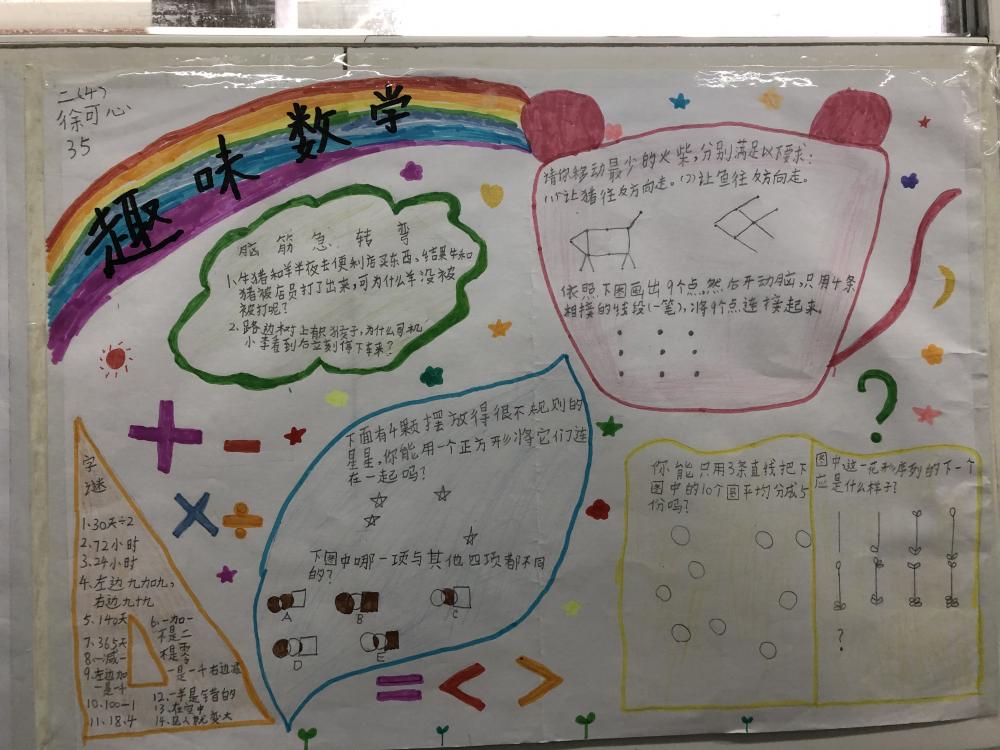 二(4)
徐可心
35
趣味数学
脑筋急转弯
1、牛猪和羊半夜去便利店买东西,结果牛和
猪被店员打了出来,可为什么羊没被
被打呢?
2、路边树上有只猴子,为什么司机
小李看到后立刻停下车来?
请你移动最少的火柴,分别满足以下要求:
(1)让猪往反方向走。(2)让鱼往反方向走。
依照下图画出9个点,然后开动脑,只用4条
相接的线段(一笔),将9个点连接起来.
字
谜
1.30天÷2
2.72小时
3.24小时
4.左边九加九,
右边九十九
5.140天
6.一加一
不是二
7.365天
8.一减一
不是零
9.左边加
一是一千
一是一千右边减
10.100-1
11.18.4
12.一半是错的
13.在空中
14.
+ - × ÷
下面有4颗摆放得很不规则的
星星,你能用一个正方形将它们连
在一起吗?
下图中哪一项与其他四项都不同
的?
A B C
D E
= < >
?
你能只用3条直线把下
图中的10个圆平均分成5
份吗?
图中这一花形序列的下一个
应是什么样子?
?